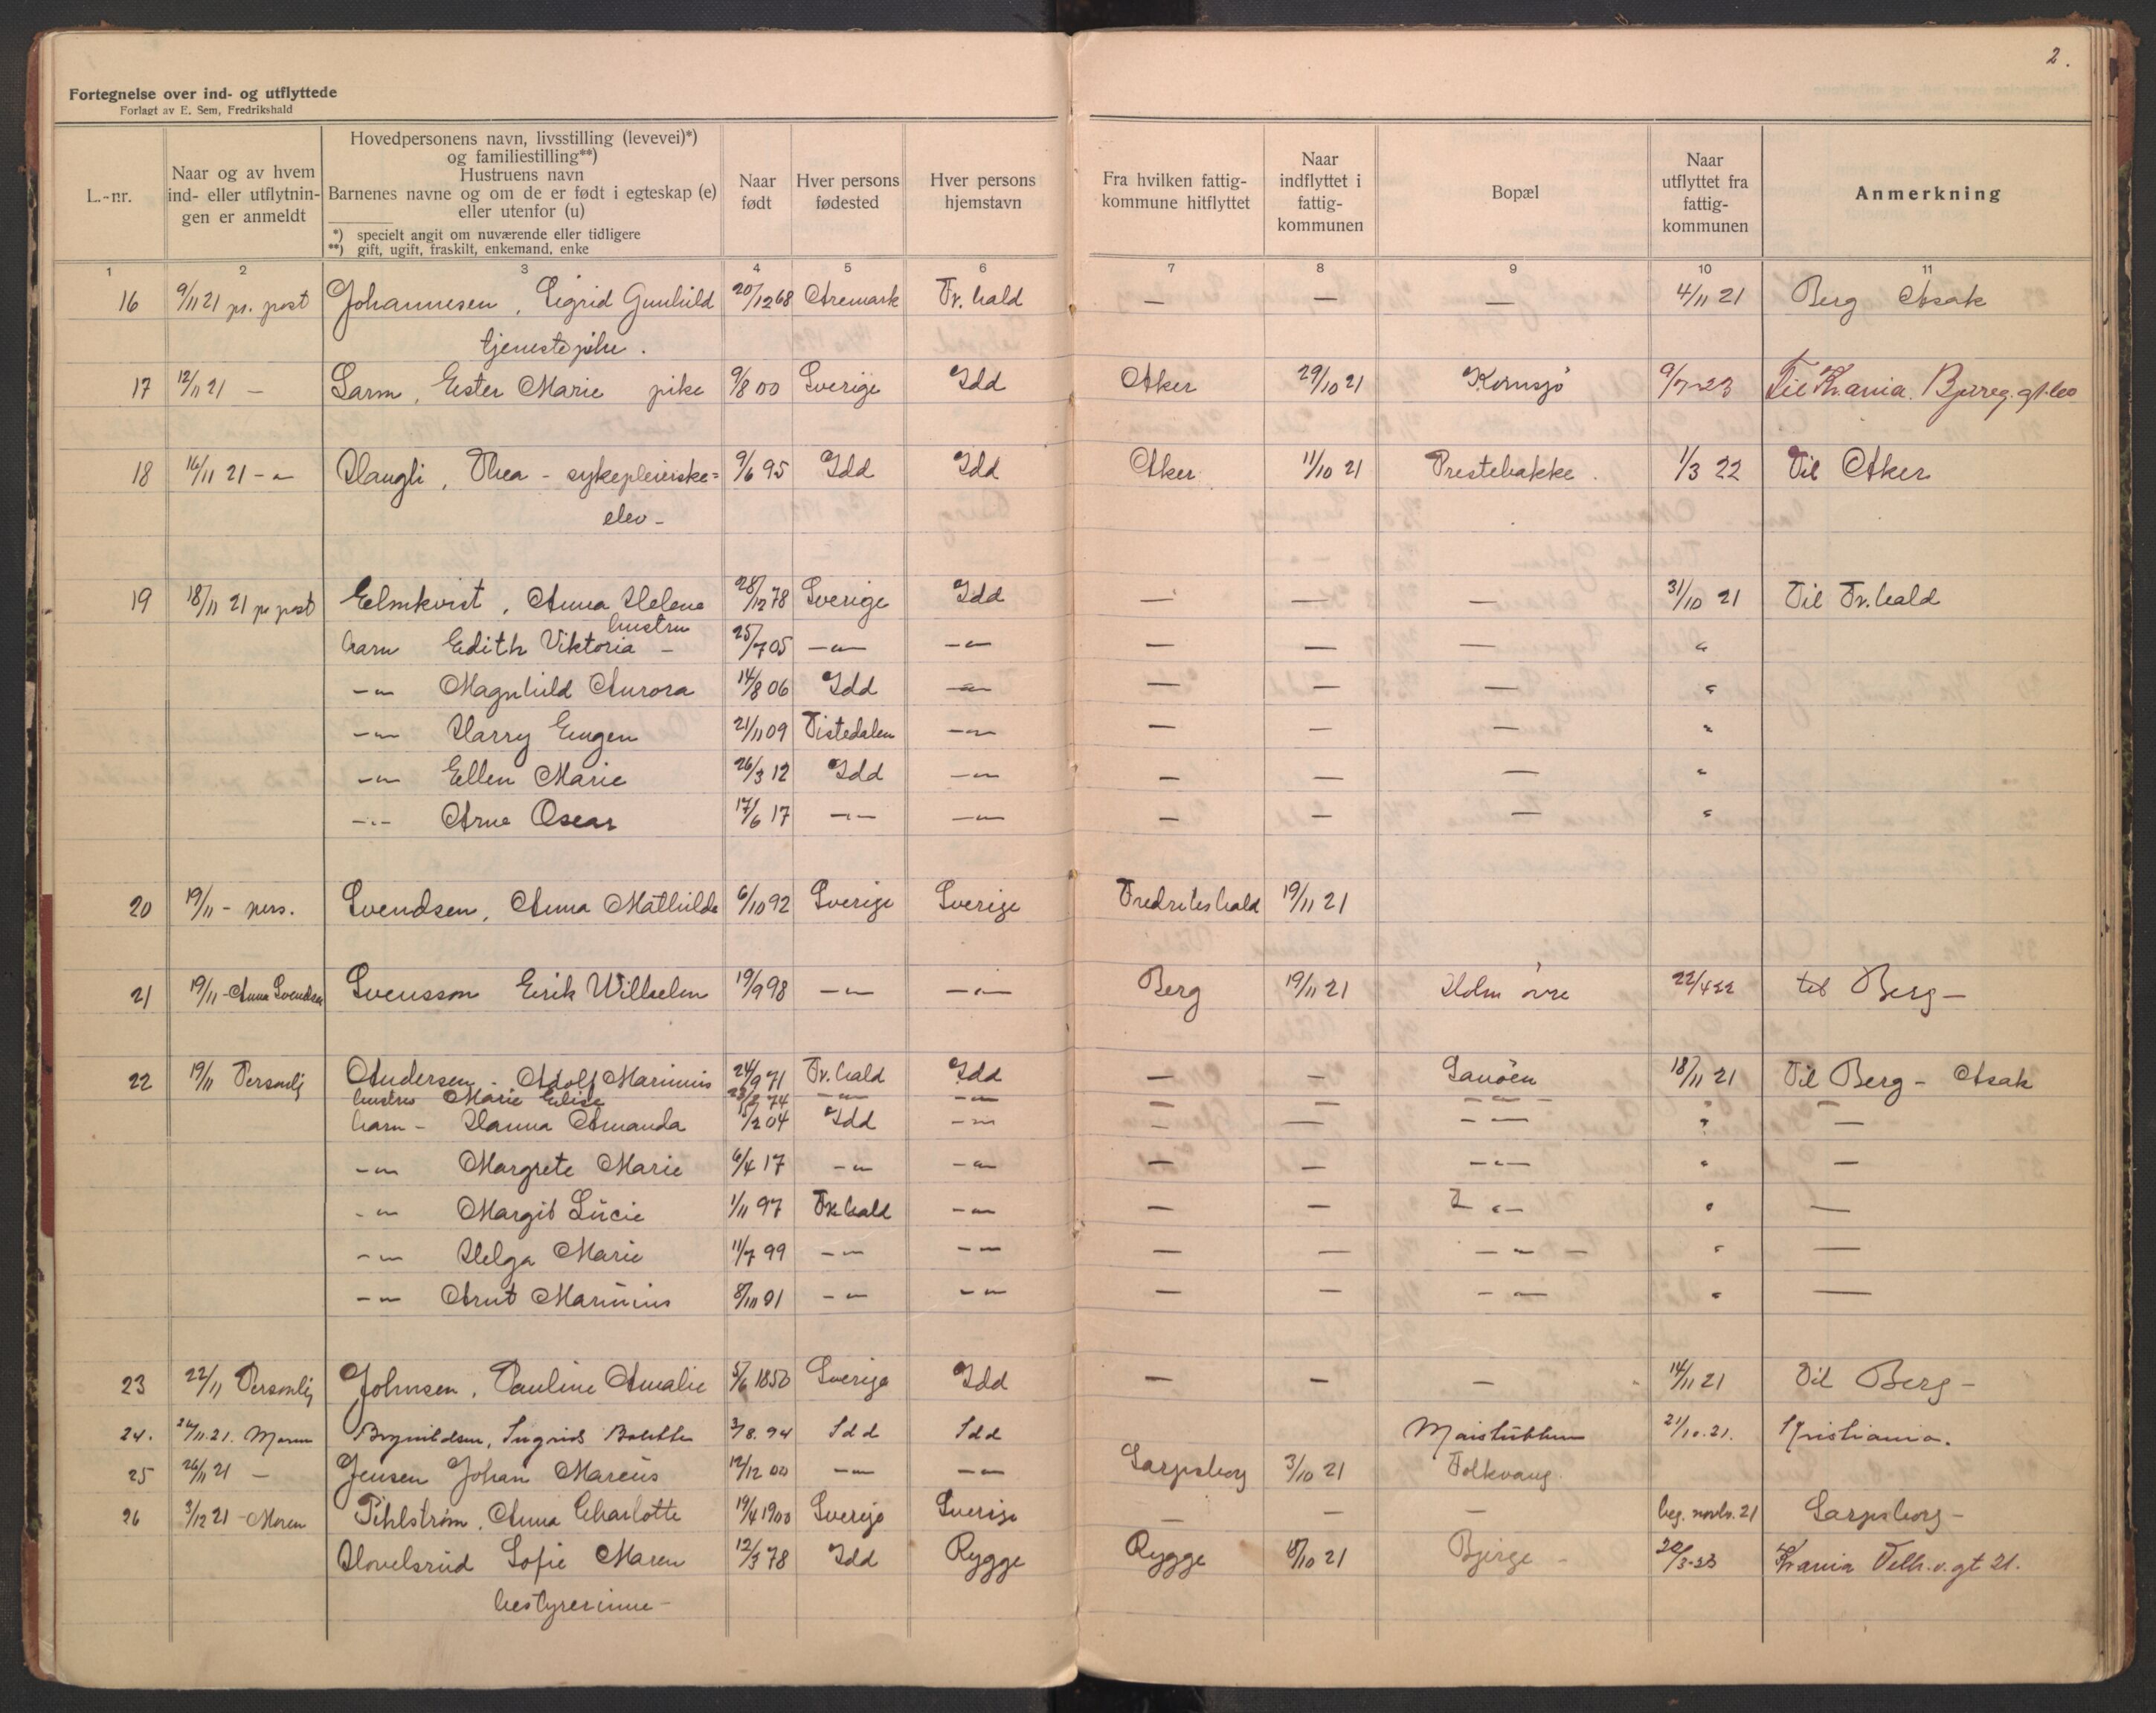 2.
Fortegnelse over ind- og utflyttede
Forlagt av E. Sem, Fredrikshald
L.-nr.
Naar og av hvem ind- eller utflytnin- gen er anmeldt
Hovedpersonens navn, livsstilling (levevei)*)
og familiestilling**)
Hustruens navn
Barnenes navne og om de er født i egteskap (e)
eller utenfor (u)
*) specielt angit om nuværende eller tidligere
**) gift, ugift, fraskilt, enkemand, enke
Naar født
Hver persons fødested
Hver persons hjemstavn
Fra hvilken fattig- kommune hitflyttet
Naar indflyttet i fattig- kommunen
Bopæl
Naar utflyttet fra fattig- kommunen
Anmerkning
1 2 3 4 5 6 7 8 9 10 11
16 9/11 21 pr. post Johannesen, Sigrid Gunhild 20/12 68 Aremark Fr.hald — — — 4/11 21 Berg Asak
tjenestepike.
17 12/11 21 — Larm, Ester Marie pike 9/8 00 Sverige Idd Aker 29/10 21 Kornsjø 9/7-23 Til Kr.ania. Bjerreg. gt. 60
18 16/11 21 -"- Haugli, Thea - sykepleierske= 9/6 95 Idd Idd Aker 11/10 21 Prestebakke. 1/3 22 Til Aker
elev-
19 18/11 21 pr post Elmkvist, Anna Helene 28/12 78 Sverige Idd — — — 31/10 21 Til Fr.hald
hustru
barn Edith Viktoria - 25/7 05 -"- -"- — — — "
-"- Magnhild Aurora 14/8 06 Idd -"- — — — "
-"- Harry Eugen 21/11 09 Tistedalen -"- — — — "
-"- Ellen Marie 26/3 12 Idd -"- — — — "
-"- Arne Oscar 17/6 17 -"- -"- — — — "
20 19/11 - pers. Svendsen, Anna Mathilde 6/10 92 Sverige Sverige Fredrikshald 19/11 21
21 19/11 - Anna Svendsen Svensson Erik Wilhelm 19/9 98 -"- -"- Berg 19/11 21 Holm övre 22/4 22 til Berg —
22 19/11 Personlig Andersen - Adolf Marinius 24/9 71 Fr.hald Idd — — Sanöen 18/11 21 Til Berg - Asak
hustru Marie Elise 23/2 74 -"- -"- — — -"- " —
barn - Hanna Amanda /2 04 Idd -"- — — -"- " —
-"- Margrete Marie 6/4 17 -"- -"- — — -"- " —
-"- Margit Lucie 1/11 97 Fr.hald -"- — — -"- " —
-"- Helga Marie 11/7 99 -"- -"- — — -"- " —
-"- Arnt Marinius 8/11 01 -"- -"- — — -"- " —
23 22/11 Personlig Johnsen, Pauline Amalie 5/6 1850 Sverige Idd — — — 14/11 21 Til Berg -
24. 24/11.21. Moren Brynildsen, Ingrid Bolette 3/8. 94 Idd Idd 21/10.21. Kristiania.
25 26/11 21 — Jensen Johan Marcus 12/12 00 -"- -"- Sarpsborg 3/10 21 Folkvang.
26 3/12 21 - Moren Pihlstrøm, Anna Charlotte 19/4 1900 Sverige Sverige — — — beg. novbr. 21 Sarpsborg -
Hovelsrud Sofie Maren 12/3 78 Idd Rygge Rygge /10 21 Bjerge - 20/3-23 Kr.ania gt 21.
bestyrerinne -